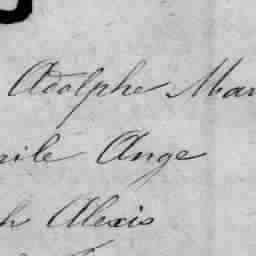 Adolphe Mar
ile Ange
h Alexis